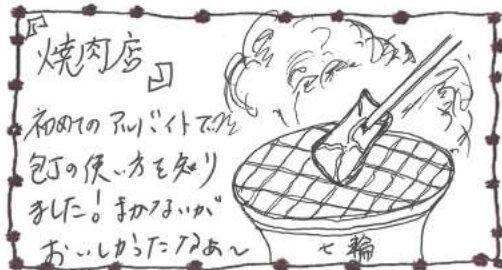 『焼肉店』
初めてのアルバイトで
包丁の使い方を知り
ました！まかないが
おいしかったなあ〜
七輪